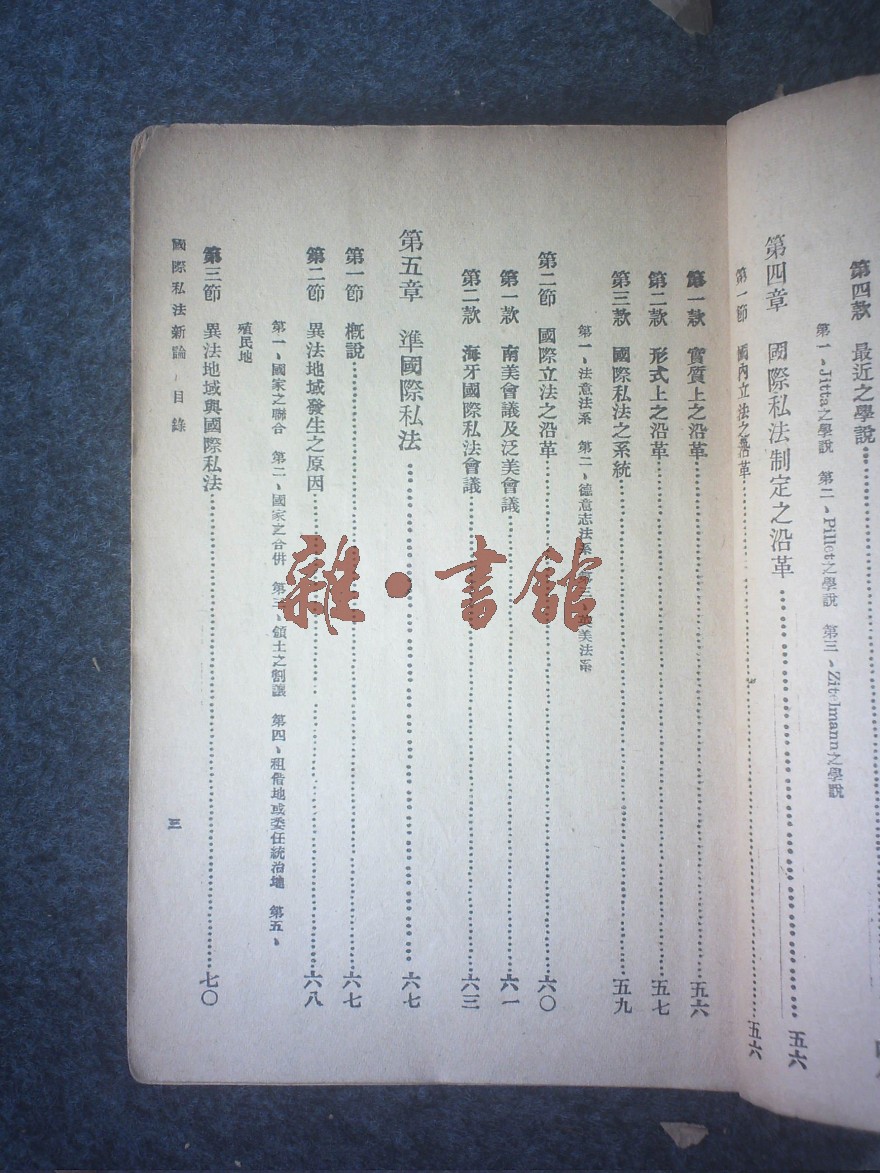 第四款　最近之學說
第一、Jitta之學說　第二、Pillet之學說　第三、Zitelmann之學說
第四章　國際私法制定之沿革……五六
第一節　國內立法之沿革……五六
第一款　實質上之沿革……五六
第二款　形式上之沿革……五七
第三款　國際私法之系統……五九
第一、法意法系　第二、德意志法系　第三、英美法系
第二節　國際立法之沿革……六〇
第一款　南美會議及泛美會議……六一
第二款　海牙國際私法會議……六三
第五章　準國際私法……六七
第一節　概說……六七
第二節　異法地域發生之原因……六八
第一、國家之聯合　第二、國家之合併　第三、領土之割讓　第四、租借地或委任統治地　第五、
殖民地
第三節　異法地域與國際私法……七〇
國際私法新論　目錄
三
雜·書館